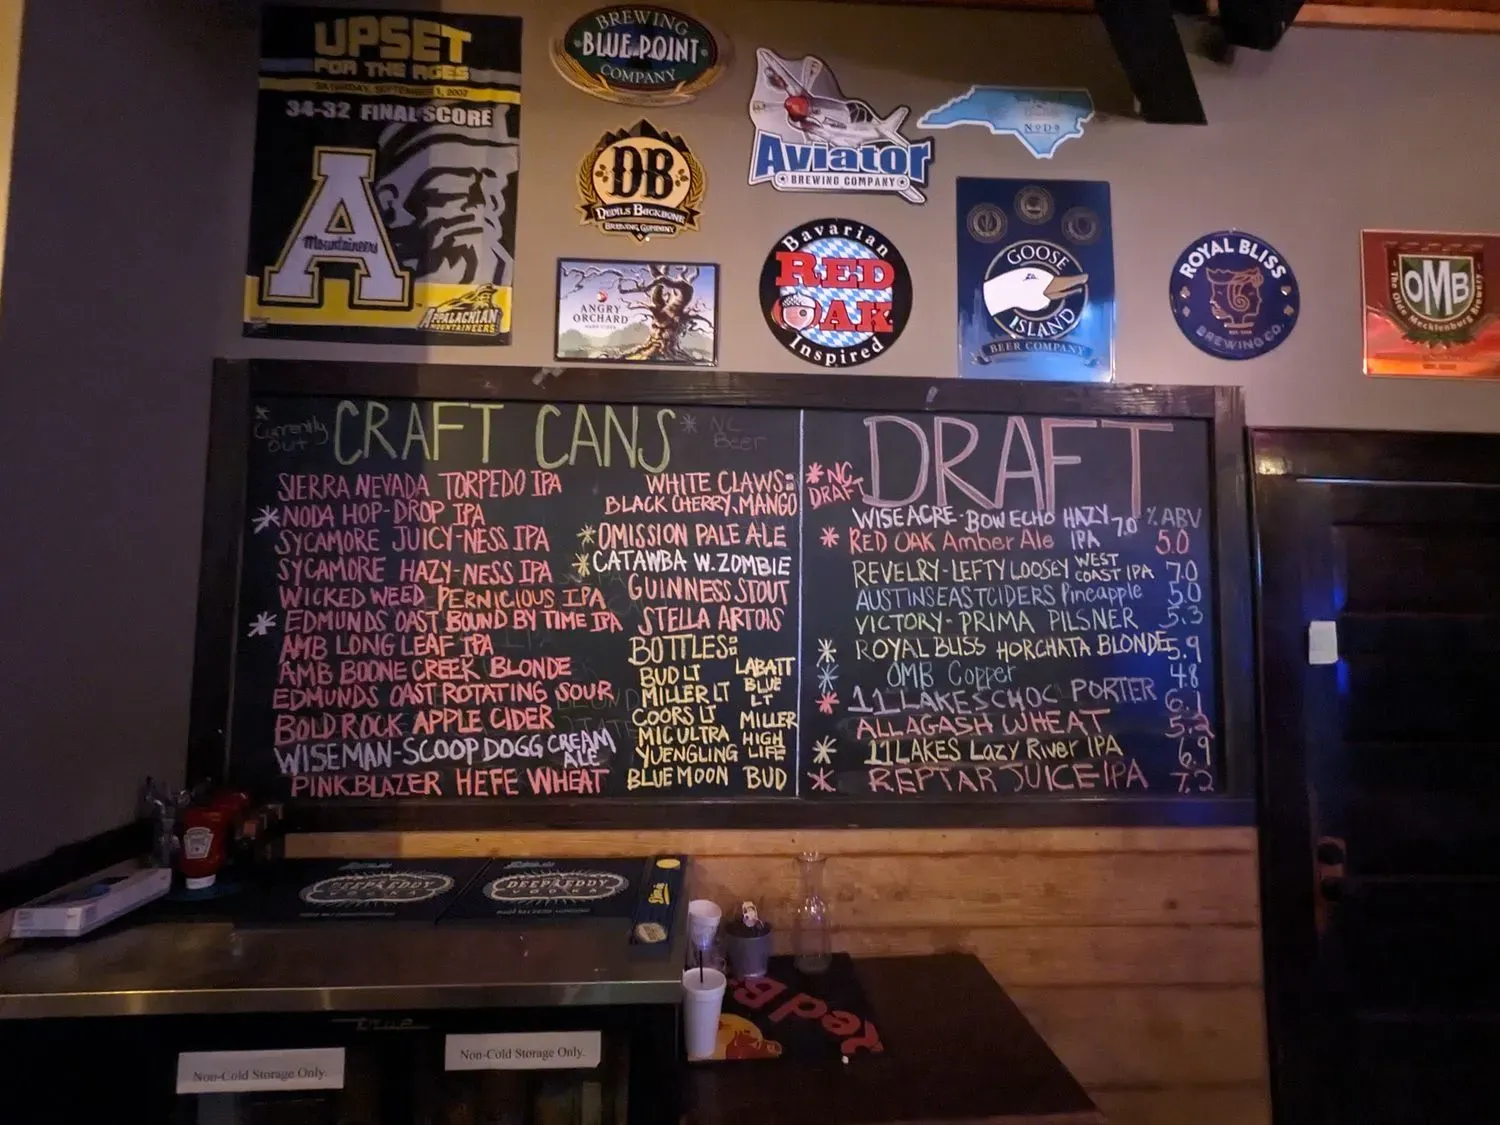 UPSET
FOR THE AGES
SATURDAY, SEPTEMBER 1, 2007
34-32 FINAL SCORE
A
Mountaineers
APPALACHIAN
MOUNTAINEERS
BREWING
BLUE POINT
COMPANY
DB
DEVILS BACKBONE
BREWING COMPANY
ANGRY
ORCHARD
HARD CIDER
AVIATOR
BREWING COMPANY
NoDa
Bavarian
RED
OAK
Inspired
GOOSE
ISLAND
BEER COMPANY
ROYAL BLISS
BREWING CO.
OMB
The Olde Mecklenburg Brewery
* Currently
OUT
CRAFT CANS
* NC
Beer
SIERRA NEVADA TORPEDO IPA
* NODA HOP-DROP IPA
SYCAMORE JUICY-NESS IPA
SYCAMORE HAZY-NESS IPA
WICKED WEED PERNICIOUS IPA
* EDMUNDS OAST BOUND BY TIME IPA
AMB LONG LEAF IPA
AMB BOONE CREEK BLONDE
EDMUNDS OAST ROTATING SOUR
BOLD ROCK APPLE CIDER
WISEMAN-SCOOP DOGG CREAM
ALE
PINK BLAZER HEFE WHEAT
WHITE CLAWS:
BLACK CHERRY, MANGO
* OMISSION PALE ALE
* CATAWBA W. ZOMBIE
GUINNESS STOUT
STELLA ARTOIS
BOTTLES:
BUD LT
MILLER LT
COORS LT
MIC ULTRA
YUENGLING
BLUE MOON
LABATT
BLUE
LT
MILLER
HIGH
LIFE
BUD
* NC
DRAFT
DRAFT
% ABV
WISEACRE-BOW ECHO HAZY 7.0
IPA
* RED OAK Amber Ale 5.0
REVELRY-LEFTY LOOSEY WEST
COAST IPA 7.0
AUSTIN EASTCIDERS Pineapple 5.0
VICTORY-PRIMA PILSNER 5.3
* ROYAL BLISS HORCHATA BLONDE 5.9
* OMB Copper 48
* 11 LAKES CHOC PORTER 6.1
ALLAGASH WHEAT 5.2
* 11 LAKES Lazy River IPA 6.9
* REPTAR JUICE IPA 7.2
DEEP EDDY
VODKA
DEEP EDDY
VODKA
true
Non-Cold Storage Only.
Non-Cold Storage Only.
Red